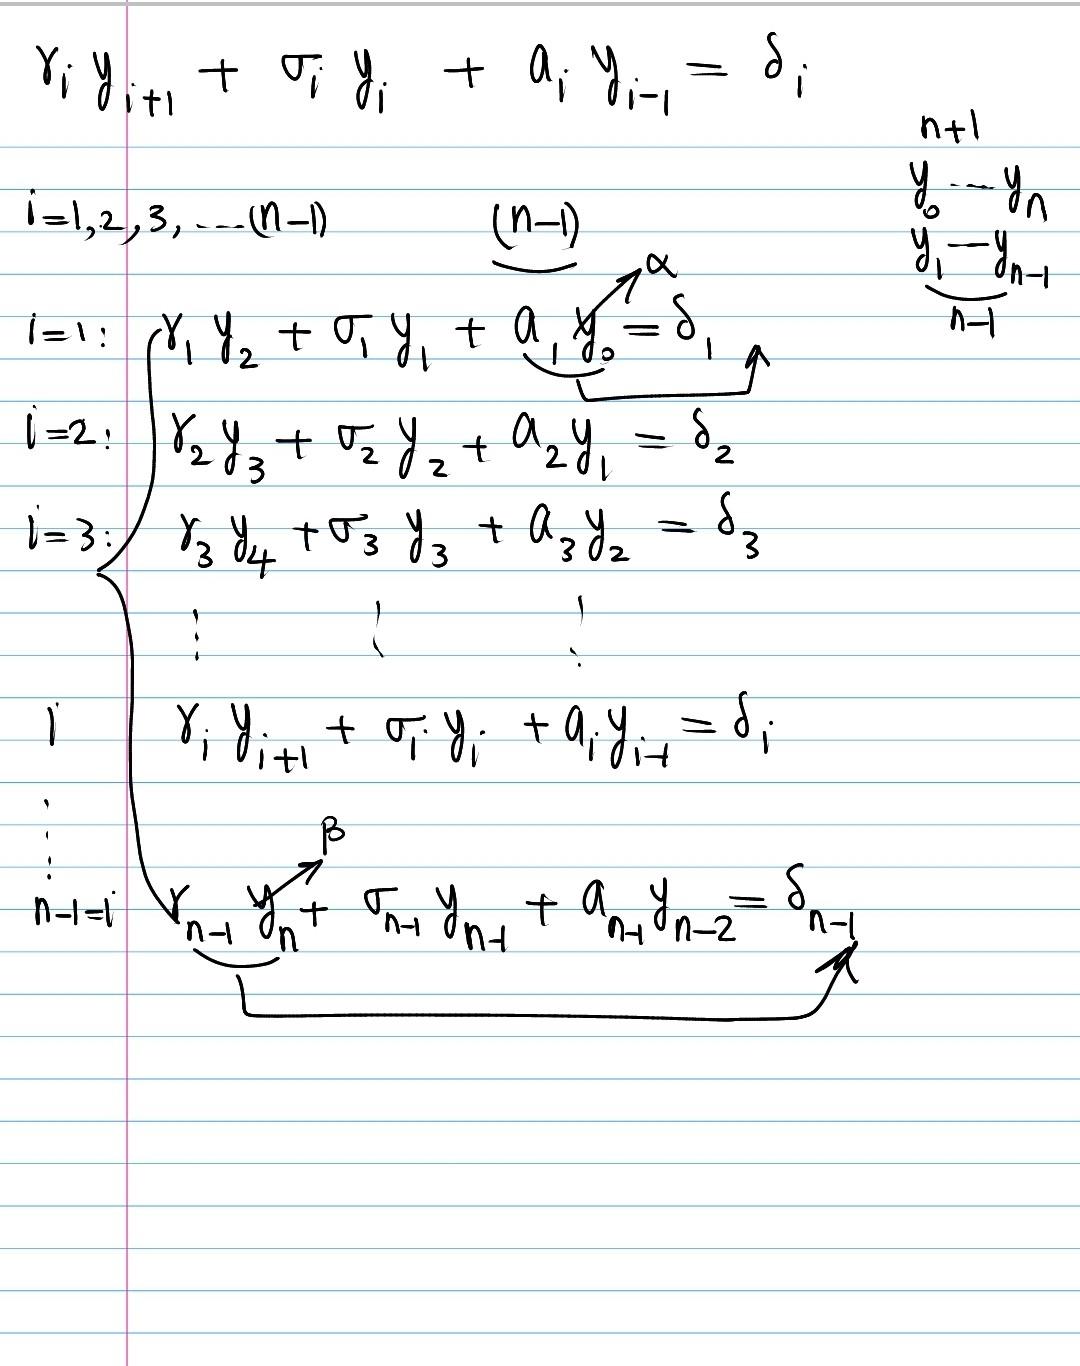 γᵢ yᵢ₊₁ + σᵢ yᵢ + aᵢ yᵢ₋₁ = δᵢ
n+1
y₀ --- yₙ
i=1,2,3, ---(n-1) (n-1)
y₁ — yₙ₋₁
n-1
α
i=1: γ₁ y₂ + σ₁ y₁ + a₁ y₀ = δ₁
i=2: γ₂ y₃ + σ₂ y₂ + a₂ y₁ = δ₂
i=3: γ₃ y₄ + σ₃ y₃ + a₃ y₂ = δ₃
i γᵢ yᵢ₊₁ + σᵢ yᵢ + aᵢ yᵢ₋₁ = δᵢ
β
n-1=i γₙ₋₁ yₙ + σₙ₋₁ yₙ₋₁ + aₙ₋₁ yₙ₋₂ = δₙ₋₁